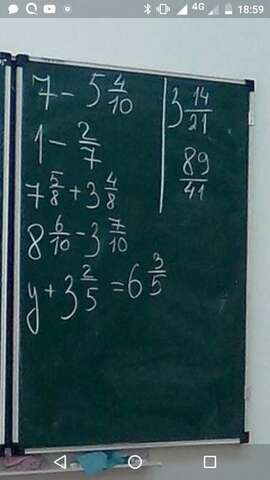 4G 18:59
7 - 5 4/10
1 - 2/7
7 5/8 + 3 4/8
8 6/10 - 3 7/10
y + 3 2/5 = 6 3/5
3 14/21
89/41